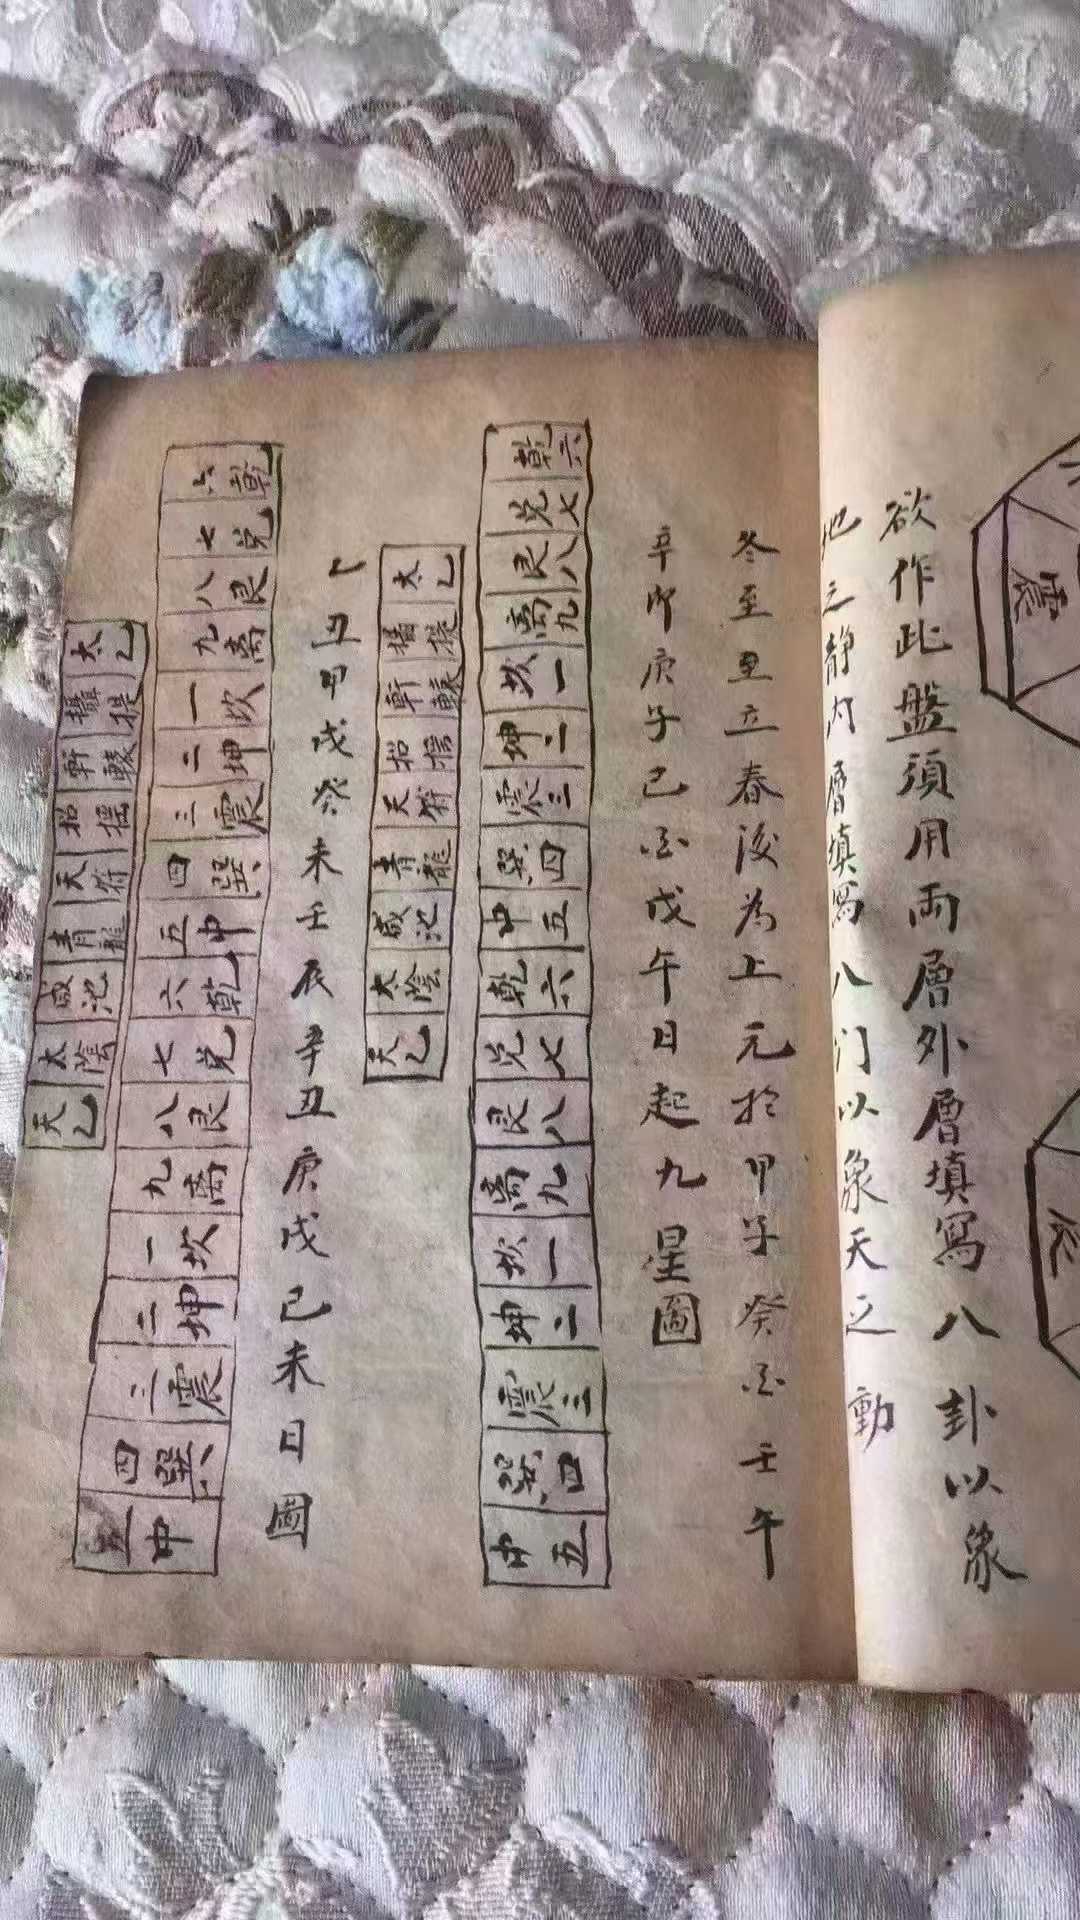 震
欲作此盤須用両層外層填寫八卦以象
地之静内層填寫八门以象天之動
冬至至立春後為上元於甲子癸酉壬午
辛卯庚子己酉戊午日起九星圖
乾六 兑七 艮八 离九 坎一 坤二 震三 巽四 中五 乾六 兑七 艮八 离九 坎一 坤二 震三 巽四 中五
太乙 攝提 軒轅 招摇 天符 青龍 咸池 太陰 天乙
乙丑甲戌癸未壬辰辛丑庚戌己未日圖
乾六 兑七 艮八 离九 坎一 坤二 震三 巽四 中五 乾六 兑七 艮八 离九 坎一 坤二 震三 巽四 中五
太乙 攝提 軒轅 招摇 天符 青龍 咸池 太陰 天乙